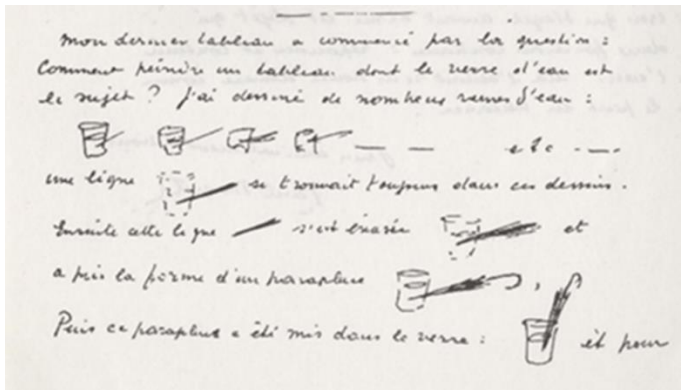 Mon dernier tableau a commencé par la question :
Comment peindre un tableau dont le verre d'eau est
le sujet ? J'ai dessiné de nombreux verres d'eau :
etc
une ligne se trouvait toujours dans ces dessins.
Ensuite cette ligne s'est évasée et
a pris la forme d'un parapluie , 
Puis ce parapluie a été mis dans le verre : et pour